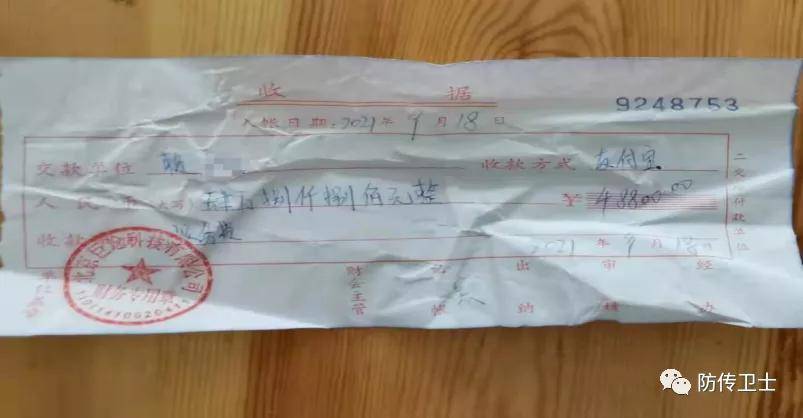 收 据
9248753
入账日期:2021年9月18日
交款单位 收款方式 支付宝
人民币(大写) 肆万捌仟捌佰元整 ¥48800.00
收款
2021年9月18日
财会主管 记帐 出纳 审核 经办
二交付款单位
财务专用章
防传卫士